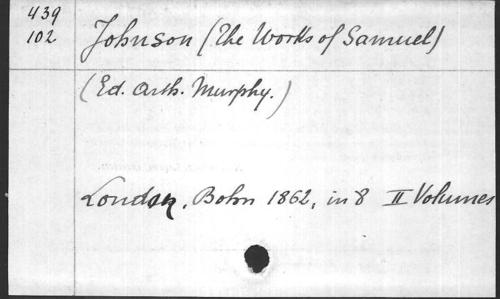 439
102 Johnson (The Works of Samuel)
(Ed. Arth. Murphy.)
London, Bohn 1862, in 8 II Volumes